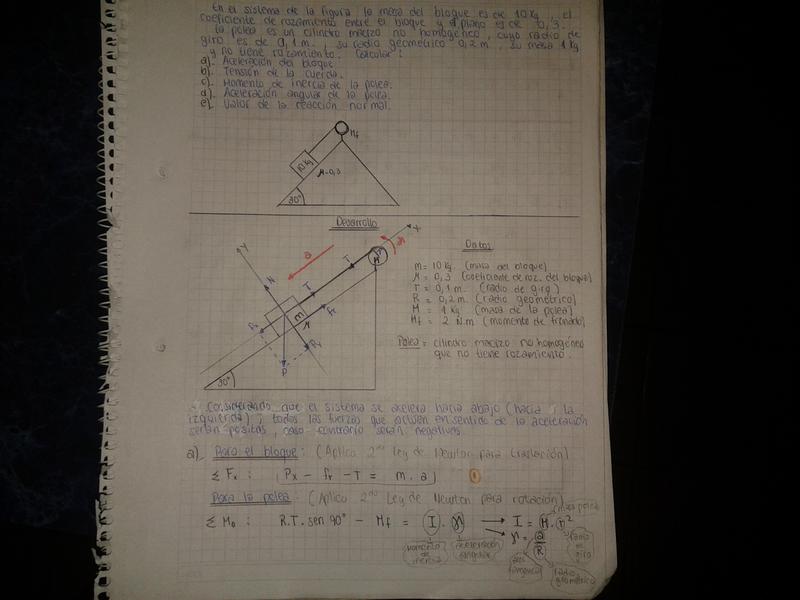 En el sistema de la figura, la masa del bloque es de 10 kg, el
coeficiente de rozamiento entre el bloque y el plano es de 0,3.
la polea es un cilindro macizo no homogéneo, cuyo radio de
giro es de 0,1 m, su radio geométrico 0,2 m, su masa 1 kg
y no tiene rozamiento. Calcular:
a). Aceleración del bloque.
b). Tensión de la cuerda.
c). Momento de inercia de la polea.
d). Aceleración angular de la polea.
e). Valor de la reacción normal.
Mf
10 kg
μ=0,3
30°
Desarrollo
X
Y
a
γ
T
M
N
T
m
Px
fr
Py
P
30°
Datos
m = 10 kg (masa del bloque)
μ = 0,3 (coeficiente de roz. del bloque)
r = 0,1 m (radio de giro)
R = 0,2 m (radio geométrico)
M = 1 kg (masa de la polea)
Mf = 2 N.m (momento de frenado)
Polea = cilindro macizo no homogéneo
que no tiene rozamiento.
Considerando que el sistema se acelera hacia abajo (hacia la
izquierda), todas las fuerzas que actúen en sentido de la aceleración
serán positivas, caso contrario serán negativas.
a) Para el bloque: (Aplico 2da ley de Newton para traslación)
Σ Fx: Px - fr - T = m . a ①
Para la polea: (Aplico 2da Ley de Newton para rotación)
masa polea
Σ Mo: R.T. sen 90° - Mf = I . γ → I = M . r²
→ γ = a/R
momento de inercia
aceleración angular
radio de giro
radio geométrico